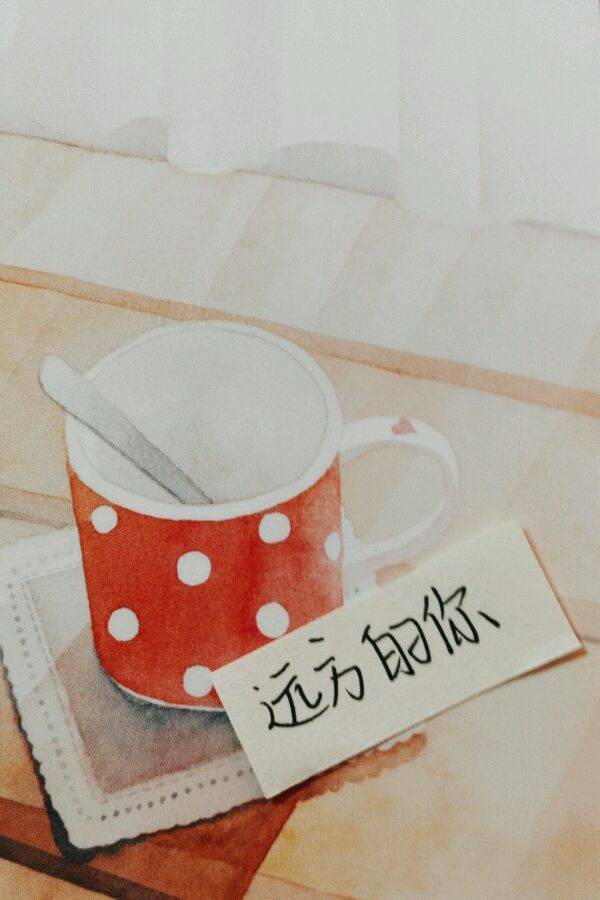 远方的你